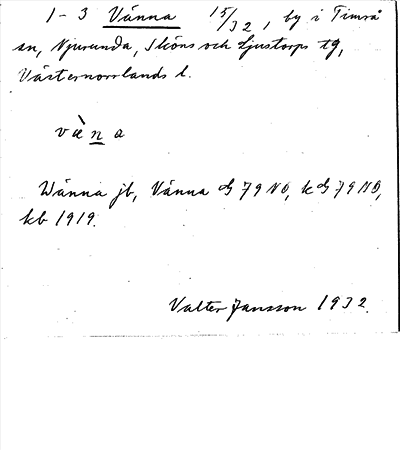 1-3 Vänna 15/32, by i Timrå
sn, Njurunda, Sköns och Ljustorps tg,
Västernorrlands l.
vὰ̈n̲a
Wänna jb, Vänna G 79 NO, k G 79 NO,
kb 1919.
Valter Jansson 1932.